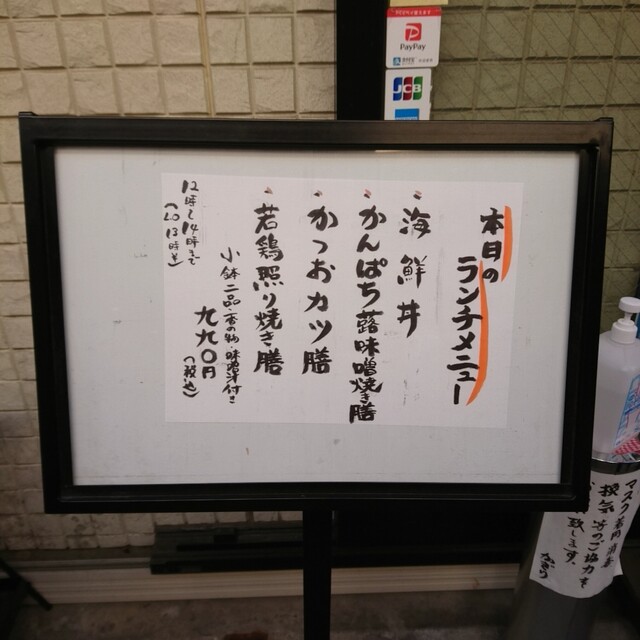 本日の
ランチメニュー
・海鮮丼
・かんぱち蕗味噌焼き膳
・かつおカツ膳
・若鶏照り焼き膳
小鉢二品・香の物・味噌汁付き
九九〇円(税込)
12時〜14時まで
(LO 13時半)
PayPay
JCB
マスク着用 消毒
換気等のご協力を
致します。